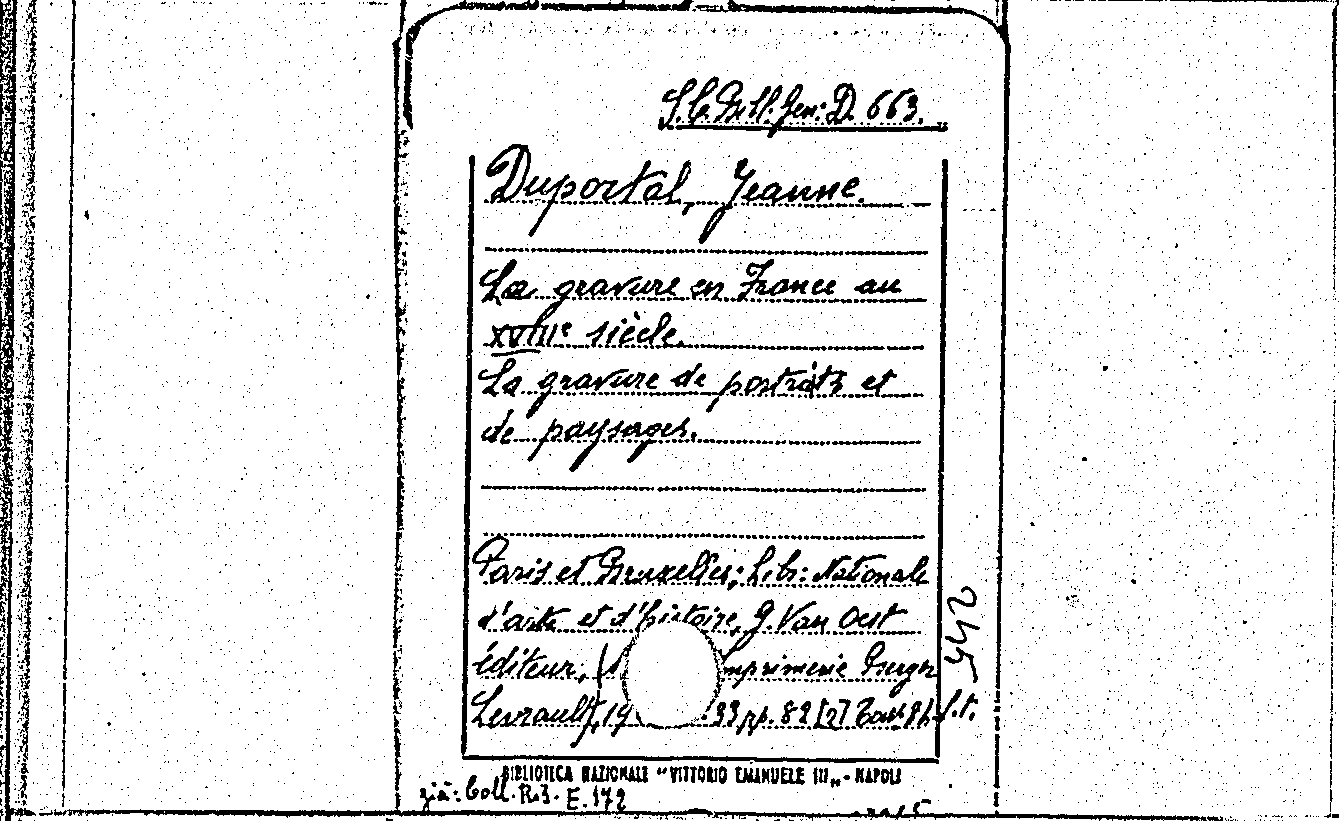 S.C. Coll. Gen: D. 663.
Duportal, Jeanne.
La gravure en France au
XVIIIe siècle.
La gravure de portraits et
de paysages.
Paris et Bruxelles; Libr: Nationale
d'arte et d'histoire, G. Van Oest
éditeur, mprimerie Berger
Levrault, 19 33 pp. 82 [2] Tav. 84 f.t.
442
BIBLIOTECA NAZIONALE "VITTORIO EMANUELE III" - NAPOLI
già: Coll. R.I. E. 172